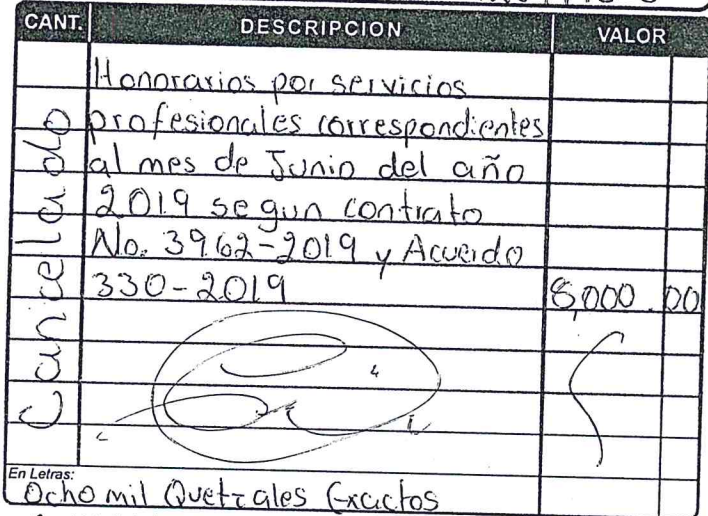 CANT. DESCRIPCION VALOR
Honorarios por servicios
profesionales correspondientes
al mes de Junio del año
2019 segun contrato
No. 3962-2019 y Acuerdo
330-2019 8,000.00
Cancelado
En Letras:
Ocho mil Quetzales Exactos